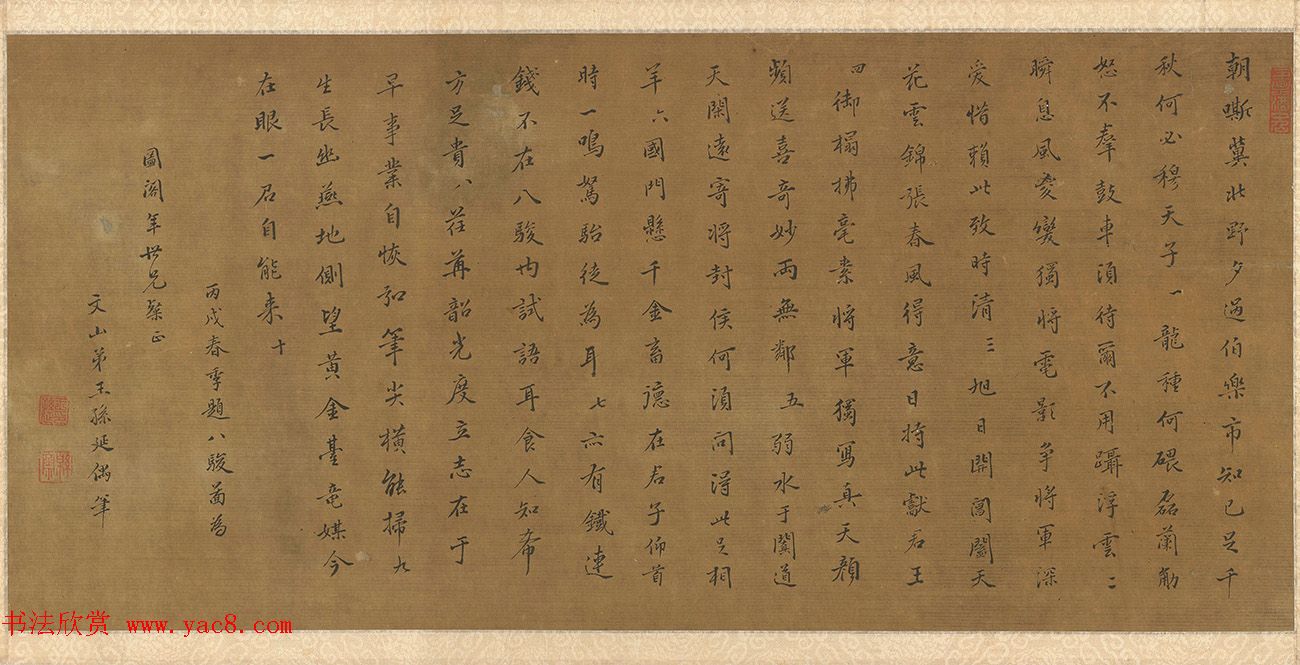 朝嘶冀北野夕過伯樂市知己足千
秋何必穆天子一龍種何磈磊蘭筋
怒不羣鼓車須待爾不用躡浮雲二
瞬息風雲變獨將電影爭將軍深
愛惜賴此致時清三旭日開閶闔天
花雲錦張春風得意日持此獻君王
四御榻拂毫素將軍獨寫真天顏
頻送喜奇妙兩無鄰五弱水于闐道
天閑遠寄將封侯何須問得此足相
羊六國門懸千金畜德在君子仰首
時一鳴駑駘徒為耳七亦有鐵連
錢不在八駿內試語耳食人知希
方足貴八荏苒韶光度立志在于
早事業自恢弘筆尖橫能掃九
生長幽燕地側望黃金臺竜媒今
在眼一君自能来十
丙戌春季題八駿啚為
圖閣年世兄粲正
文山弟王孫延偶筆
书法欣赏 www.yac8.com